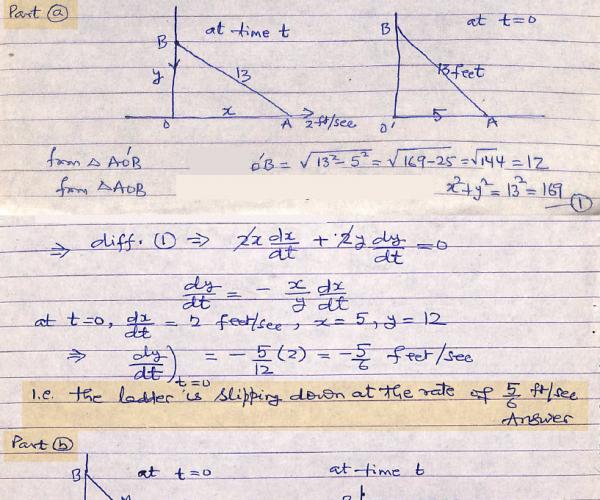 Part (a)
at time t
at t=0
B
B
y
13
13 feet
x
5
O
A
2 ft/sec
O'
A
from △ AO'B
O'B = √13²-5² = √169-25 = √144 = 12
from △ AOB
x²+y² = 13² = 169
①
⇒ diff. ① ⇒ 2x dx/dt + 2y dy/dt = 0
dy/dt = - x/y dx/dt
at t=0, dx/dt = 2 feet/sec, x = 5, y = 12
⇒ dy/dt)t=0 = - 5/12 (2) = - 5/6 feet/sec
I.e. the ladder is slipping down at the rate of 5/6 ft/sec
Answer
Part (b)
B
at t=0
at time t